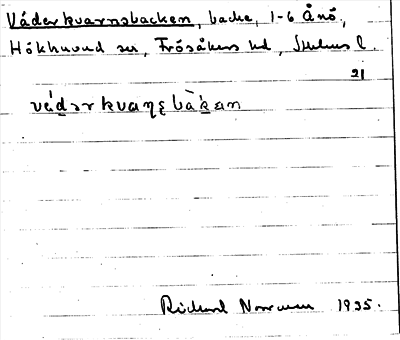 Väderkvarnsbacken, backe, 1-6 Ånö,
Hökhuvud sn, Frösåkers hd, Sthlms l.
21
vá̀dərkvaɳɛbàkan
Rickard Norrman 1935.